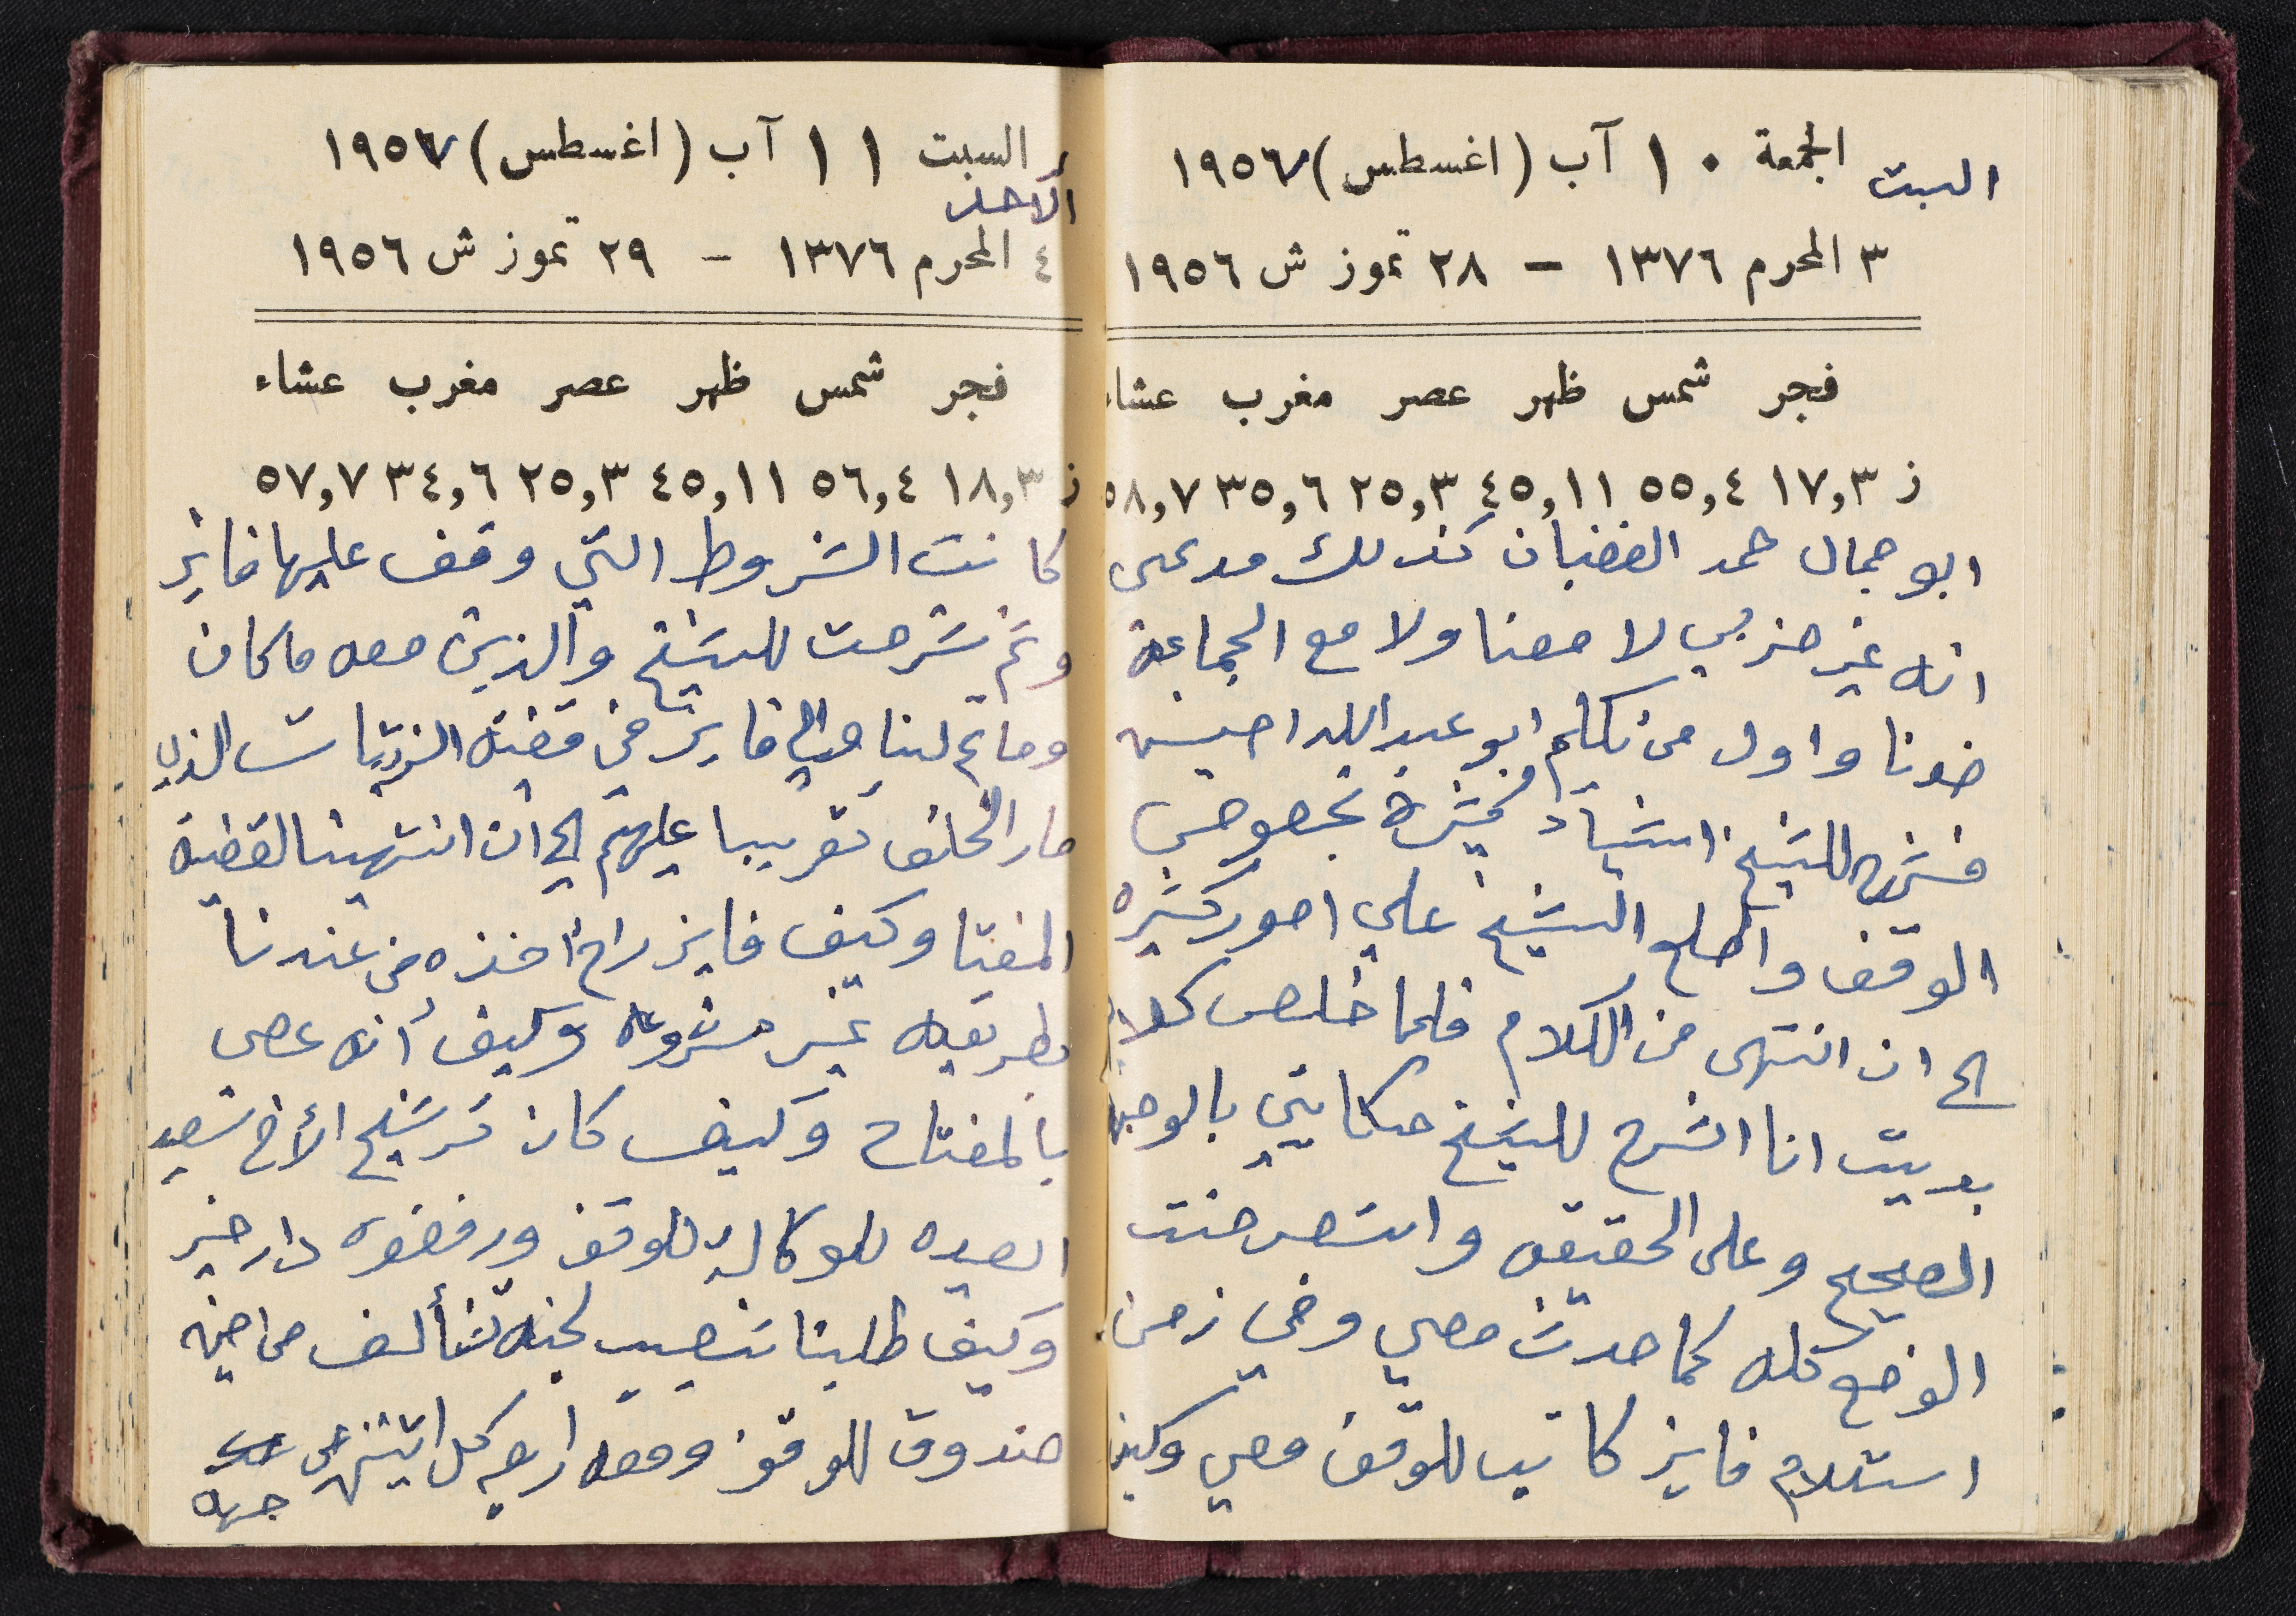 السبت الجمعة ١٠ آب (اغسطس) ١٩٥٧
٣ المحرم ١٣٧٦ – ٢٨ تموز ش ١٩٥٦
فجر شمس ظهر عصر مغرب عشاء
ز ١٧,٣ ٥٥,٤ ٤٥,١١ ٢٥,٣ ٣٥,٦ ٥٨,٧
ابو جمال حمد الغضبان كذلك مدعى
انه غير حزبي لا معنا ولا مع الجماعة
ضدنا واول من تكلم ابو عبد الله احسين
فشرح للشيخ اشياء كثيرة بخصوص
الوقف واطلع الشيخ على امور كثيره
الى ان انتهى من الكلام فلما خلص كلام
بديت انا اشرح للشيخ حكايتي بالوجه
الصحيح وعلى الحقيقه واستعرضت
الوضع كله كما حدث معي وفي زمن
استلام فايز كاتب للوقف معي وكيف
السبت ١١ آب (اغسطس) ١٩٥٧
الأحد
٤ المحرم ١٣٧٦ – ٢٩ تموز ش ١٩٥٦
فجر شمس ظهر عصر مغرب عشاء
ز ١٨,٣ ٥٦,٤ ٤٥,١١ ٢٥,٣ ٣٤,٦ ٥٧,٧
كانت الشروط التي وقف عليها فايز
وتم شرحت للشيخ والذين معه ما كان
وما تم لنا فايز في قضية الزيتات الذي
صار الخلف تقريبا عليهم الى ان انتهينا لقضية
المفتا وكيف فايز راح أخذه من عندنا
بطريقه غير مشروعه وكيف أنه عصى
بالمفتاح وكيف كان ترشيح الأخ سعيد
للوكالة للوقف ورفضوه دار خير
وكيف طلبنا تنصيب لجنه تتألف من امين
صندوق للوقف ومعه اربعه كل اثنين من
جهه